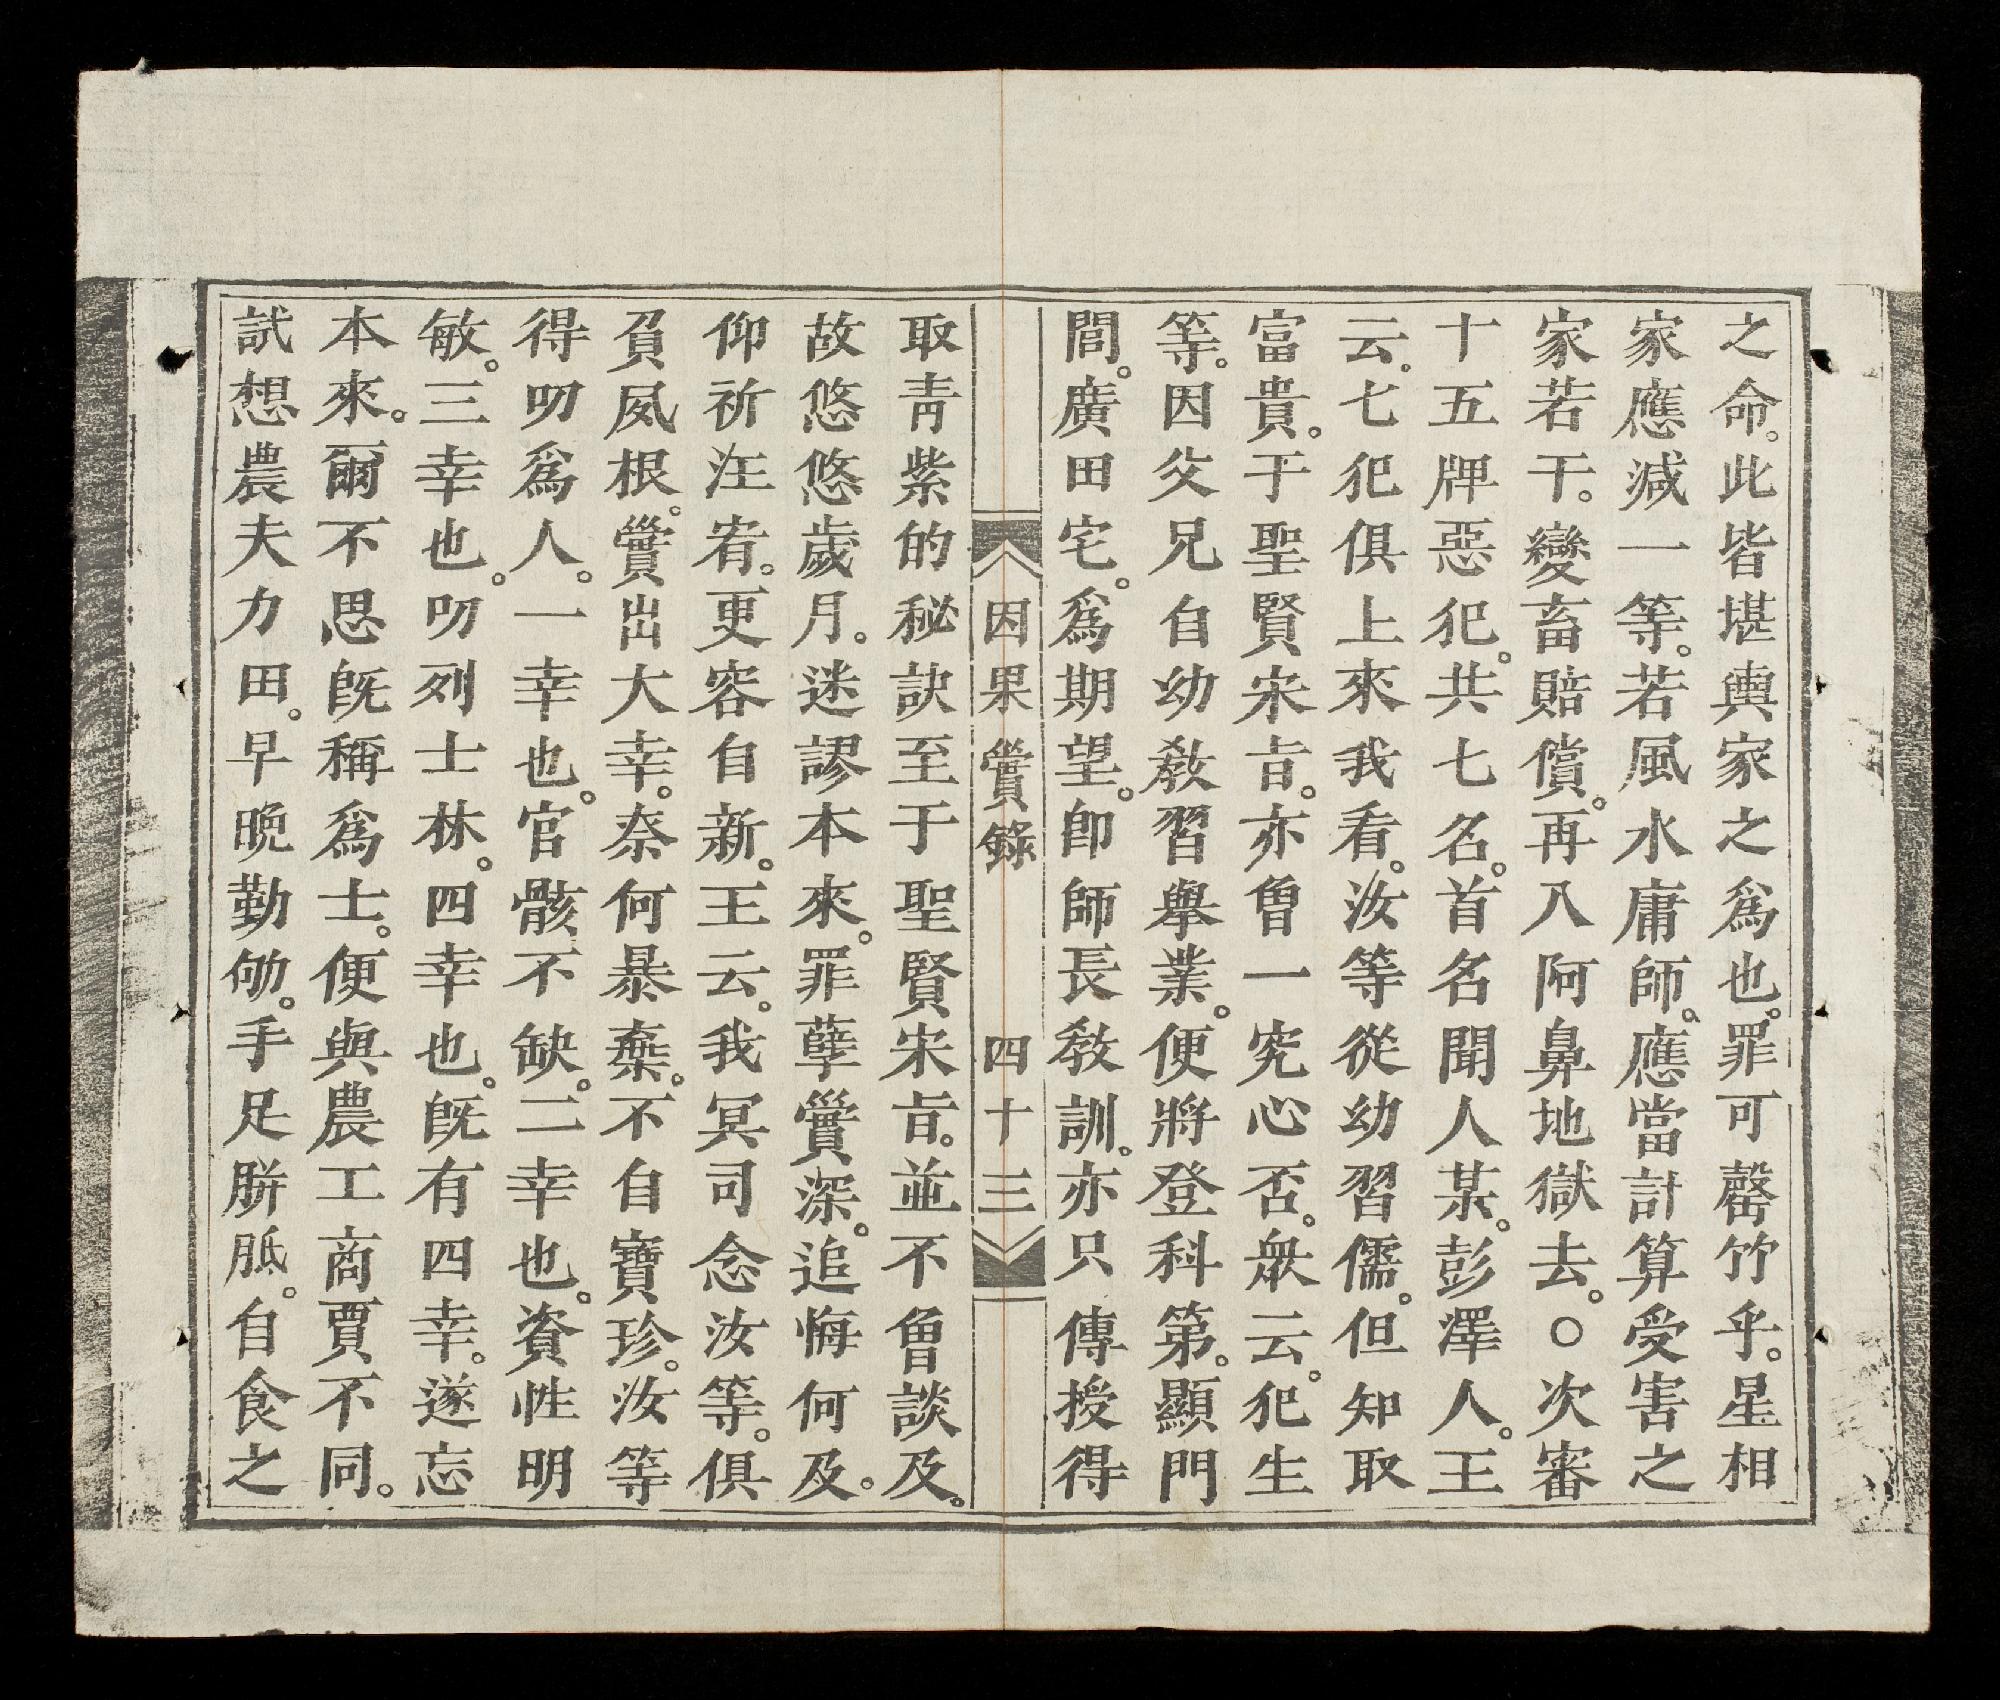 之命。此皆堪輿家之爲也。罪可罄竹乎。星相
家應減一等。若風水庸師。應當計算受害之
家若干。變畜賠償。再入阿鼻地獄去。○次審
十五牌惡犯。共七名。首名聞人某。彭澤人。王
云。七犯俱上來我看。汝等從幼習儒。但知取
富貴。于聖賢宋㫖。亦曾一究心否。衆云。犯生
等。因父兄自幼敎習舉業。便將登科第。顯門
閭。廣田宅。爲期望。卽師長敎訓。亦只傳授得
因果實錄 四十三
取靑紫的秘訣至于聖賢宋㫖。並不曾談及。
故悠悠歲月。迷謬本來。罪孽實深。追悔何及。
仰祈汪宥。更容自新。王云。我冥司念汝等。俱
負夙根。實出大幸。奈何暴棄。不自寶珍。汝等
得叨爲人。一幸也。官骸不缺。二幸也。資性明
敏。三幸也。叨列士林。四幸也。旣有四幸。遂忘
本來。爾不思旣稱爲士。便與農工商賈不同。
試想農夫力田。早晩勤劬。手足胼胝。自食之